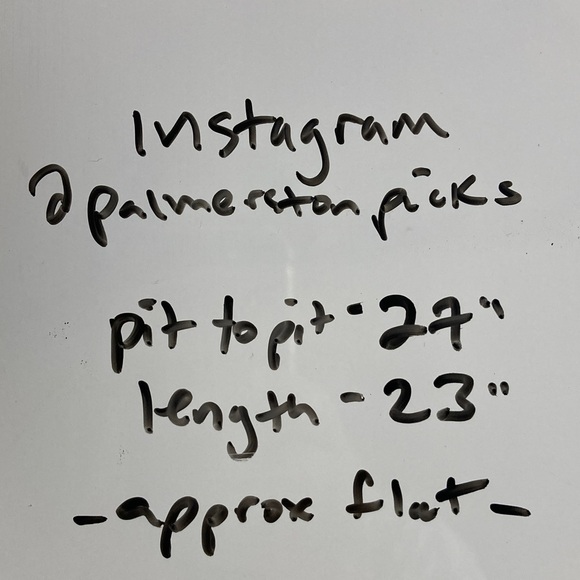 Instagram
@palmerstonpicks
pit to pit - 27"
length - 23"
- approx flat -